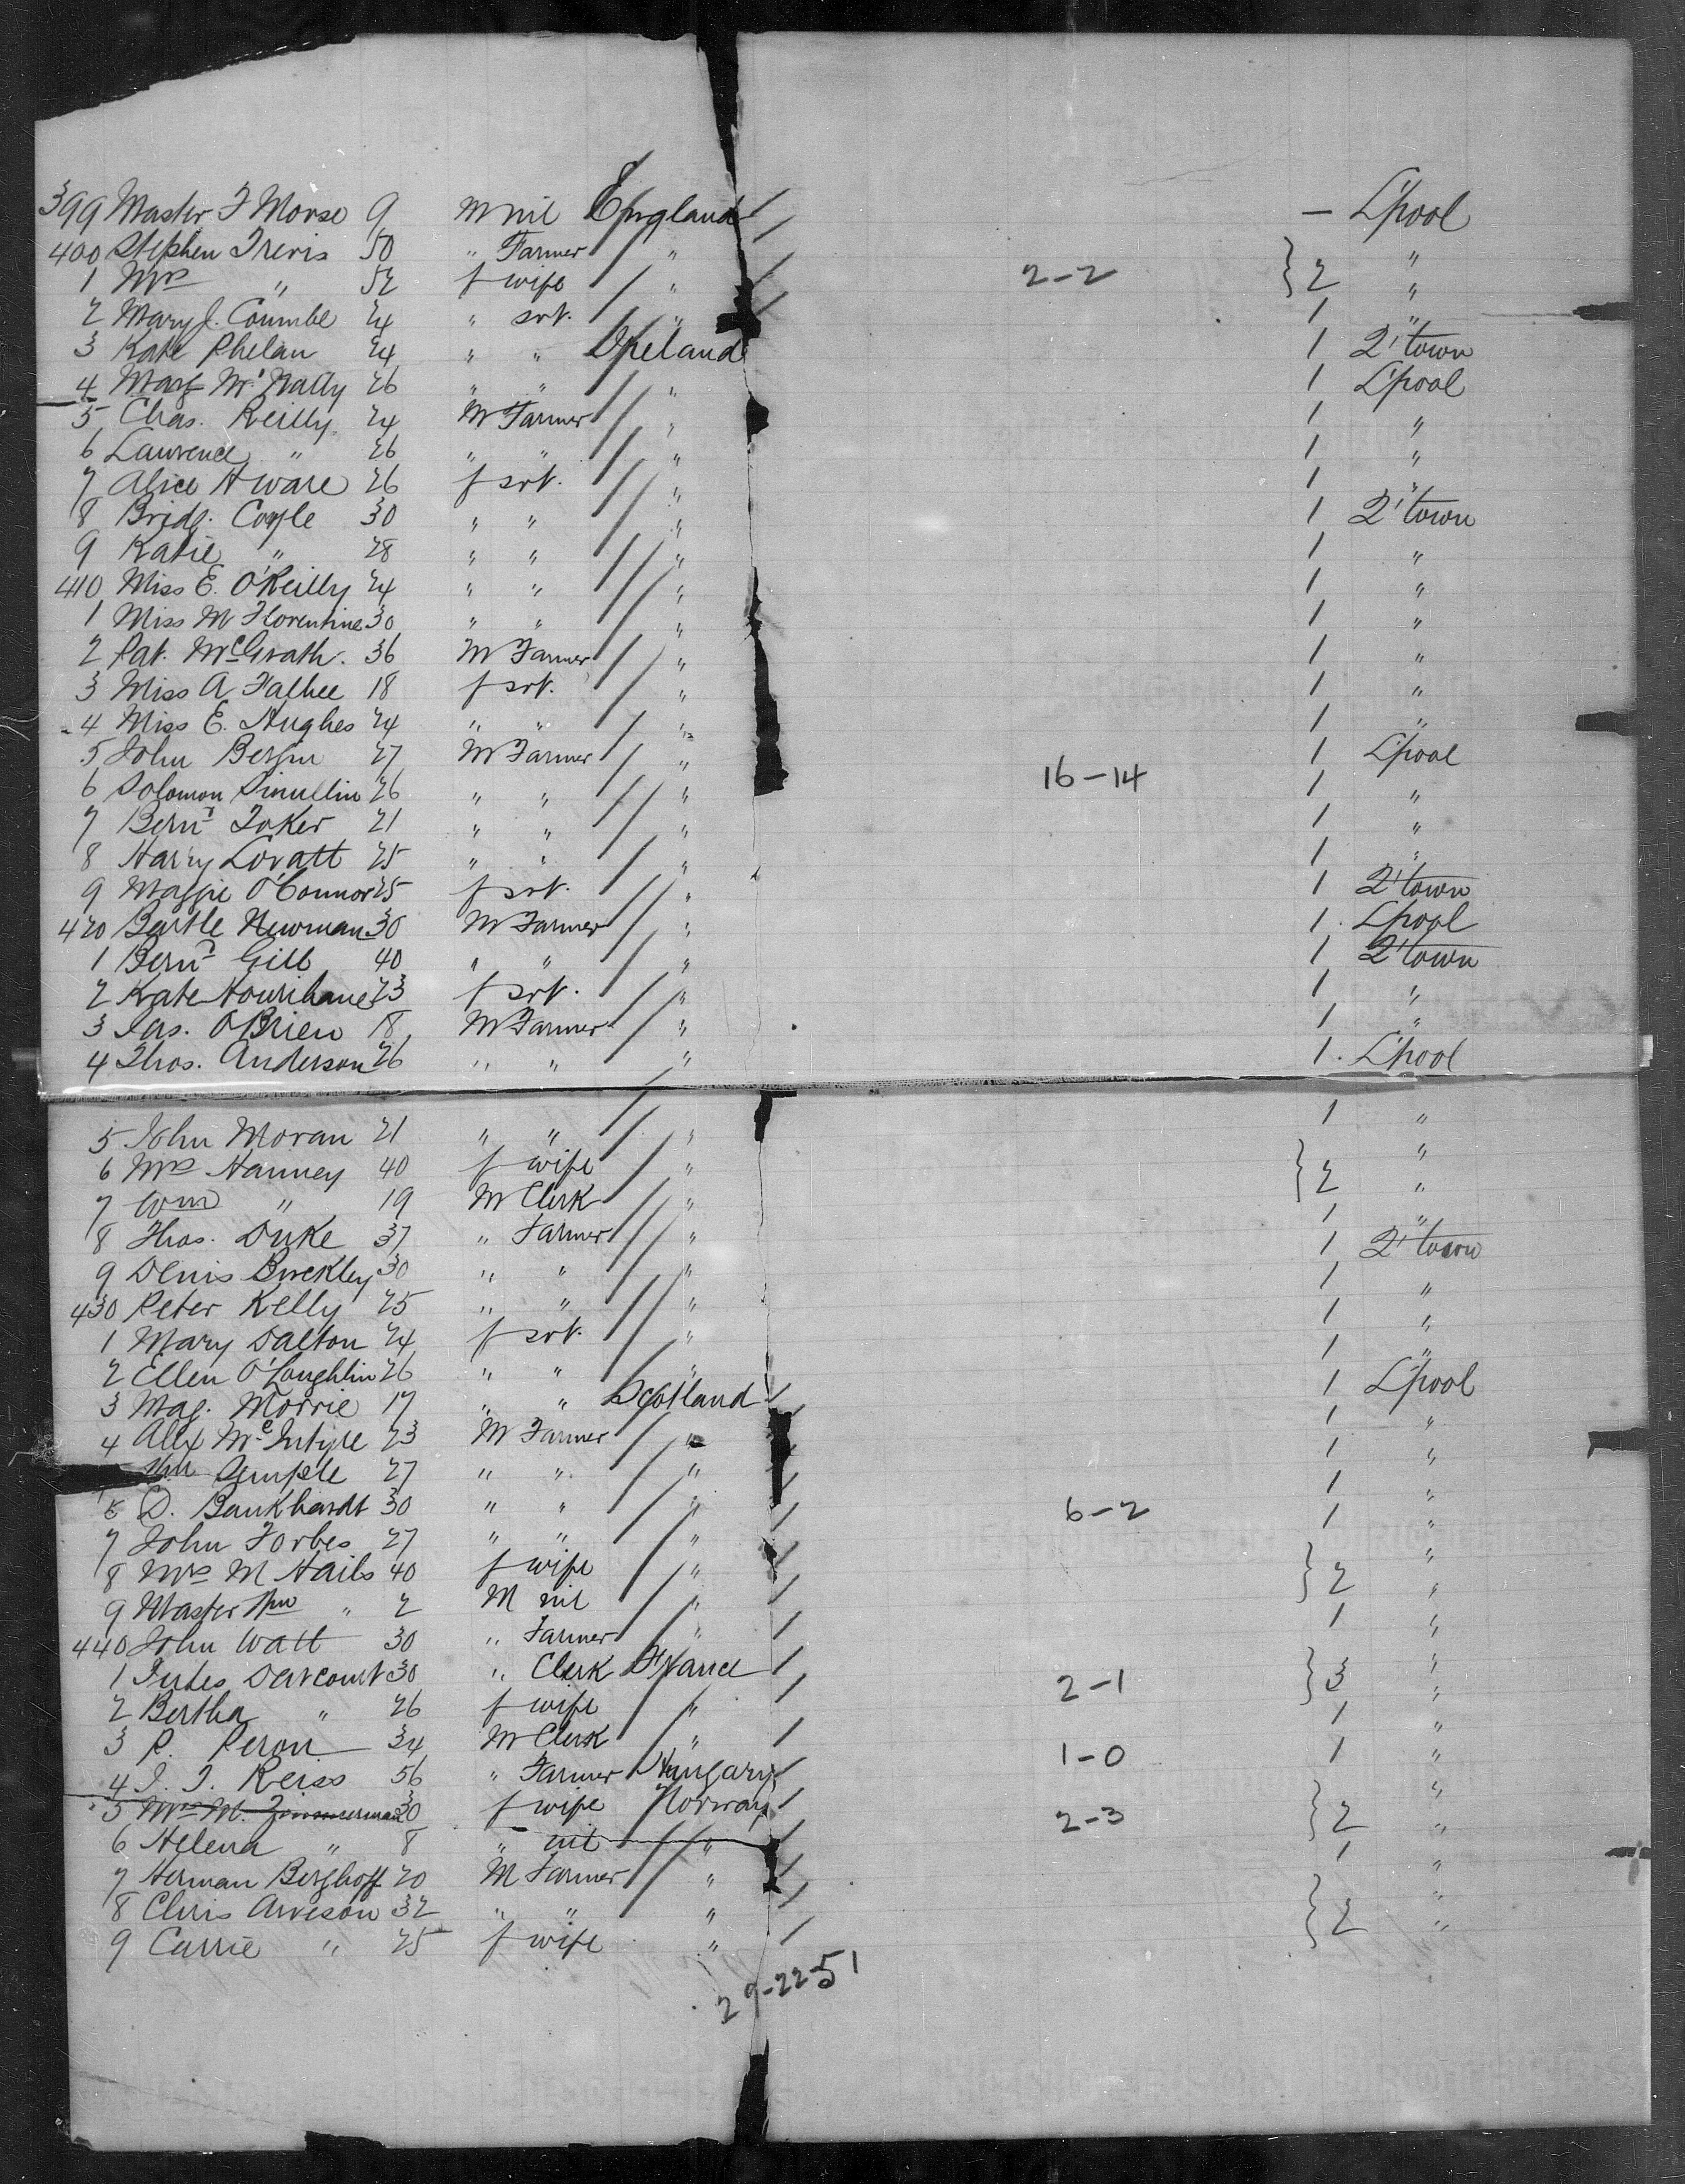 399 Master F Morse 9 M nil England / — L'pool
400 Stephen Trevis 50 " Farmer " "
1 Mrs " 52 f wife " 2-2 } 2 "
2 Mary J. Coumbe 24 " srt. " 1 "
3 Kate Phelan 24 " " Ireland 1 Q'town
4 Mary McNally 26 " " " 1 L'pool
5 Chas. Reilly 24 M Farmer " 1 "
6 Lawrence " 26 " " " 1 "
7 Alice Aware 26 f srt. " 1 "
8 Bridg. Coyle 30 " " " 1 Q'town
9 Katie " 28 " " " 1 "
410 Miss E. O'Reilly 24 " " " 1 "
1 Miss M Florentine 30 " " " 1 "
2 Pat. McGrath. 36 M Farmer " 1 "
3 Miss A 18 f srt. " 1 "
4 Miss E. Hughes 24 " " " 1 "
5 John Bergin 27 M Farmer " 1 L'pool
6 Solomon 26 " " " 16-14 1 "
7 Bernd Toker 21 " " " 1 "
8 Harry Lovatt 25 " " " 1 "
9 Maggie O'Connor 25 f srt. " 1 Q'town
420 Bartle Newman 30 M Farmer " 1 L'pool
1 Bernd Gill 40 " " " 1 Q'town
2 Kate Hourihane 23 f srt. " 1 "
3 Jas. O'Brien 18 M Farmer " 1 "
4 Thos. Anderson 26 " " " 1 L'pool
5 John Moran 21 " " " 1 "
6 Mrs Hanney 40 f wife " } 2 "
7 Wm " 19 M Clerk " "
8 Thos. Duke 37 " Farmer " 1 "
9 Denis Buckley 30 " " " 1 Q'town
430 Peter Kelly 25 " " " 1 "
1 Mary Dalton 24 f srt. " 1 "
2 Ellen O'Loughlin 26 " " " 1 "
3 Mag. Morrie 17 " " Scotland 1 L'pool
4 Alex McIntyre 23 M Farmer " 1 "
Wm Semple 27 " " " 1 "
6 D. Bankhardt 30 " " " 6-2 1 "
7 John Forbes 27 " " " 1 "
8 Mrs M Hails 40 f wife " } 2 "
9 Master Wm " 2 M nil " "
440 John Watt 30 " Farmer " 1 "
1 Jules Darcourt 30 " Clerk France 2-1 } 3 "
2 Bertha " 26 f wife " "
3 P. Peron 34 M Clerk " 1 "
4 J. J. Reiss 56 " Farmer Hungary 1-0 1 "
5 Mrs M. Zimmerman 30 f wife Norway 2-3 } 2 "
6 Helena " 8 " nil " "
7 Herman Berghoff 20 M Farmer " 1 "
8 Chris Arveson 32 " " " } 2 "
9 Carrie " 25 f wife " "
29-22-51